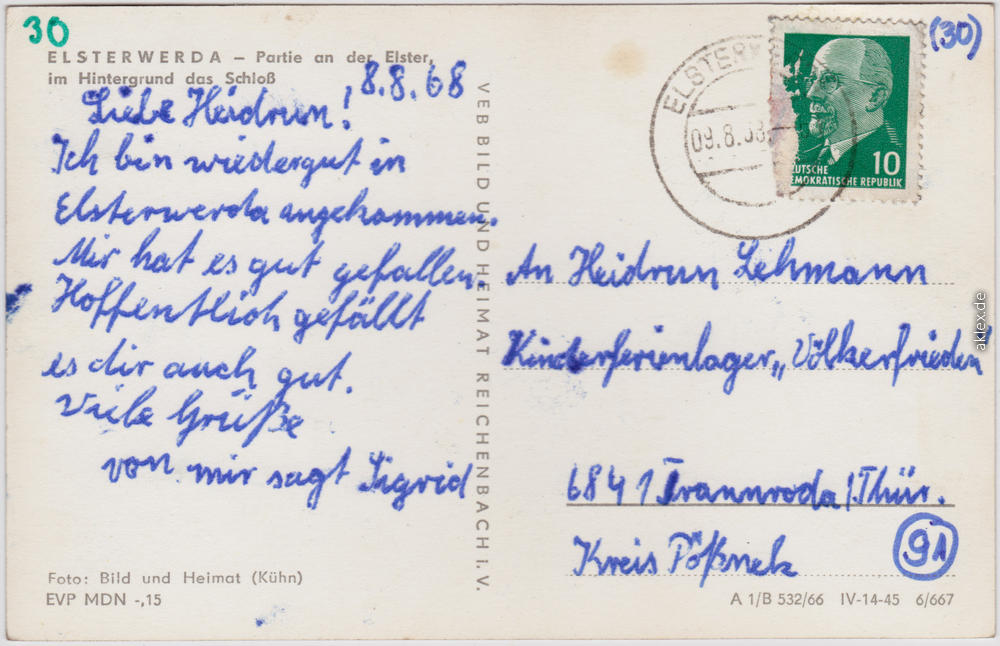 30
ELSTERWERDA – Partie an der Elster,
im Hintergrund das Schloß
8.8.68
Liebe Heidrun!
Ich bin wiedergut in
Elsterwerda angekommen.
Mir hat es gut gefallen.
Hoffentlich gefällt
es dir auch gut.
Viele Grüße
von mir sagt Sigrid
Foto: Bild und Heimat (Kühn)
EVP MDN -,15
VEB BILD UND HEIMAT REICHENBACH i. V.
(30)
09.8.68
10
DEUTSCHE
DEMOKRATISCHE REPUBLIK
An Heidrun Lehmann
Kinderferienlager „Völkerfrieden"
6841 Trannroda/Thür.
Kreis Pößnek
91
A 1/B 532/66 IV-14-45 6/667
aklex.de